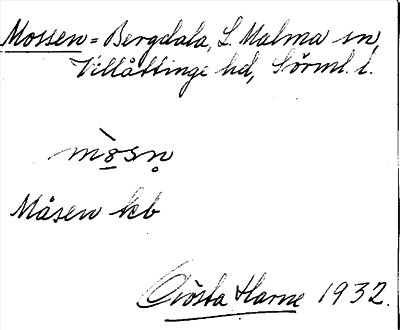 Mossen = Bergdala, L. Malma sn,
Villåttinge hd, Sörml. l.
mòsn̥
Måsen kb
Gösta Harne 1932.